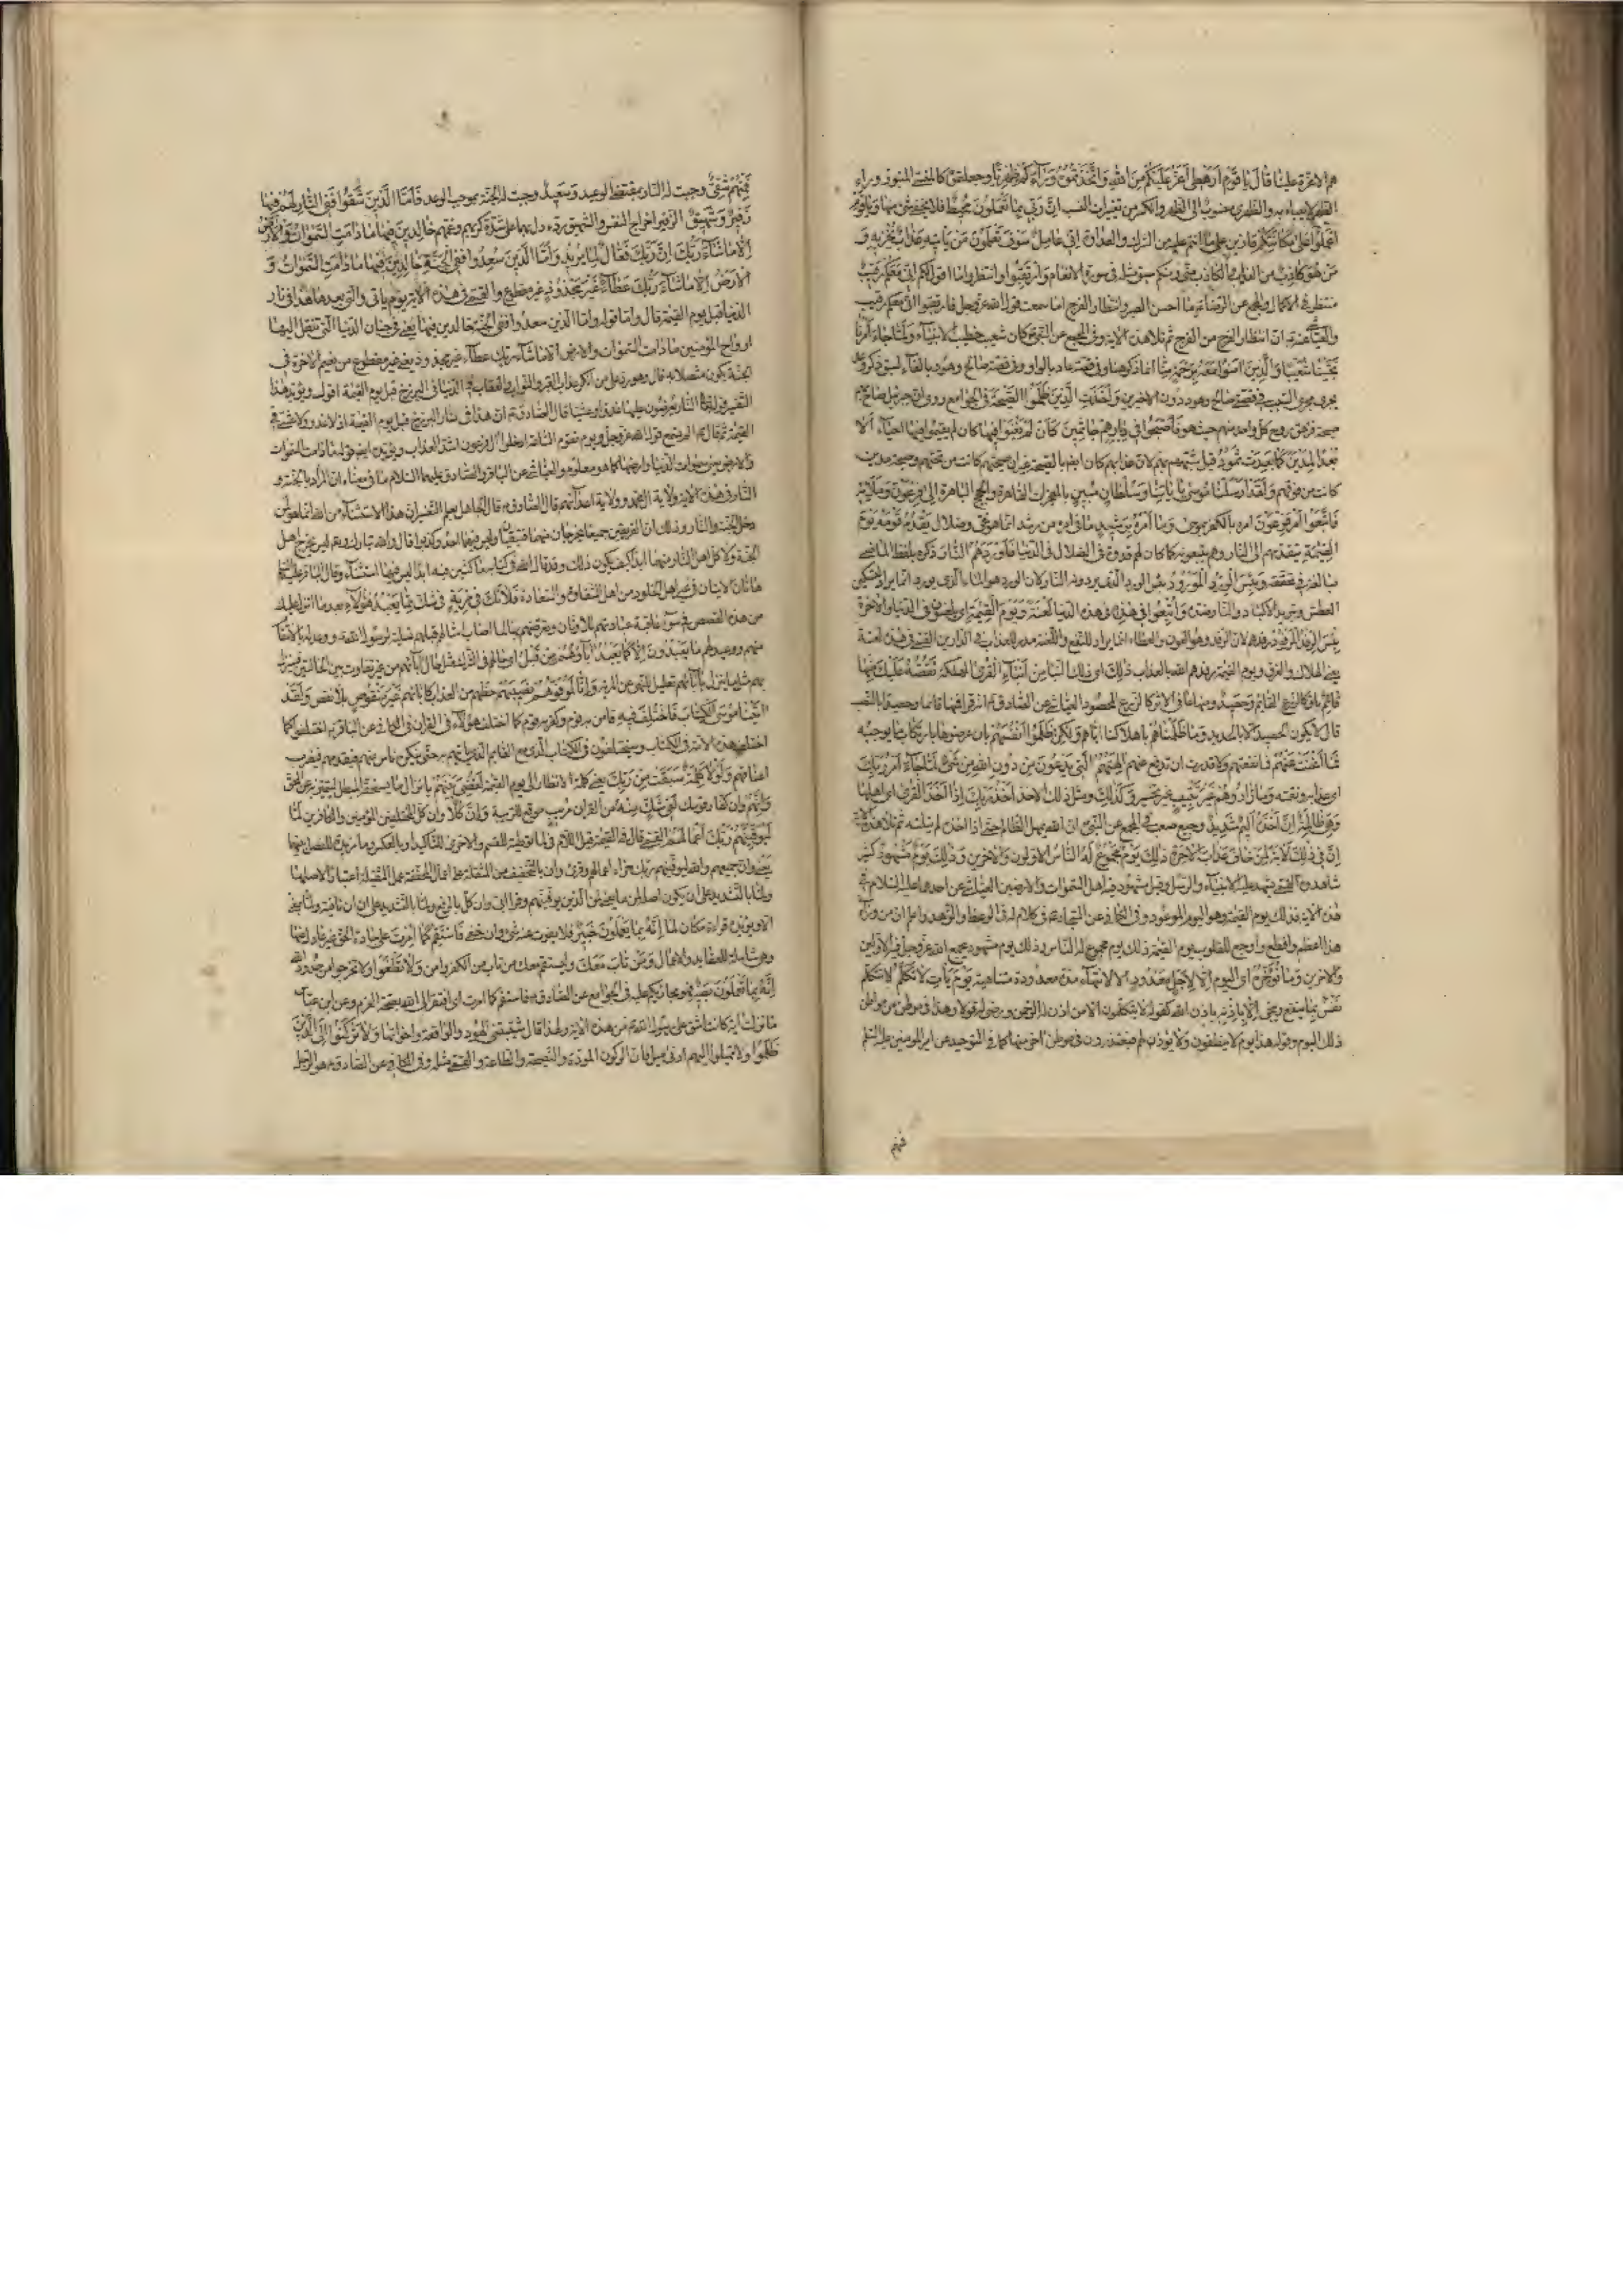 هم الاعزة علينا قال يا قوم ارهطي اعز عليكم من الله واتخذتموه وراءكم ظهريا وجعلتموه كالمنسي المنبوذ وراء
الظهر لا يعبأ به والظهري منسوب الى الظهر والكسر من تغييرات النسب ان ربي بما تعملون محيط فلا يخفى شئ منها ويا قوم
اعملوا على مكانتكم قارين على ما انتم عليه من الشرك والعداوة اني عامل سوف تعلمون من ياتيه عذاب يخزيه و
من هو كاذب من المعذب والكاذب مني ومنكم سبق مثله في سورة الانعام وارتقبوا وانتظروا ما اقول لكم اني معكم رقيب
منتظر في الاكمال والمجمع عن الرضا ما احسن الصبر وانتظار الفرج اما سمعت قول الله عز وجل فارتقبوا اني معكم رقيب
والعياشي عنه ان انتظار الفرج من الفرج ثم تلا هذه الاية وفي المجمع عن النبي كان شعيب خطيب الانبياء ولما جاء امرنا
نجينا شعيبا والذين امنوا معه برحمة منا انما ذكر هنا وفي قصة عاد بالواو وفي قصة صالح وهود بالفاء لسبق ذكر وعد
يجري مجرى السبب في قصتي صالح وهود دون الاخيرين واخذت الذين ظلموا الصيحة في الجوامع روي ان جبرئيل صاح بهم
صيحة فزهق روح كل واحد منهم حيث هو فاصبحوا في ديارهم جاثمين كان لم يغنوا فيها كان لم يقيموا فيها احياء الا
بعدا لمدين كما بعدت ثمود قيل شبههم بهم لان عذابهم كان ايضا بالصيحة غير ان صيحتهم كانت من تحتهم وصيحة مدين
كانت من فوقهم ولقد ارسلنا موسى باياتنا وسلطان مبين بالمعجزات القاهرة والحجج الباهرة الى فرعون وملائه
فاتبعوا امر فرعون امره بالكفر بموسى وما امر فرعون برشيد ما في امره من رشد انما هو غي وضلال يقدم قومه يوم
القيمة يتقدمهم الى النار وهم يتبعونه كما كان لهم قدوة في الضلال في الدنيا فاوردهم النار ذكره بلفظ الماضي
مبالغة في تحققه وبئس الورد المورود بئس الورد الذي يردونه النار لان الورد هو الماء الذي يورد انما يراد لتسكين
العطش وتبريد الاكباد والنار ضده واتبعوا في هذه في هذه الدنيا لعنة ويوم القيمة اي يلعنون في الدنيا والاخرة
بئس الرفد المرفود رفدهم لان الرفد وهو العون والعطاء انما يراد للنفع واللعنة مدد للعذاب في الدارين القمي في هذه لعنة
يعني الهلاك والغرق ويوم القيمة رفدهم الله بالعذاب ذلك اي ذلك النبأ من انباء القرى المهلكة نقصه عليك منها
قائم باق كالزرع القائم وحصيد ومنها عافي الاثر كالزرع المحصود العياشي عن الصادق انه قرا فمنها قائما وحصيدا بالنصب
قال لا يكون الحصيد الا بالحديد وما ظلمناهم باهلاكنا اياهم ولكن ظلموا انفسهم بان عرضوها له بارتكاب ما يوجبه
فما اغنت عنهم فما نفعتهم ولا قدرت ان تدفع عنهم الهتهم التي يدعون من دون الله من شئ لما جاء امر ربك
اي عذابه ونقمته وما زادوهم غير تتبيب غير تخسير وكذلك ومثل ذلك الاخذ اخذ ربك اذا اخذ القرى اي اهلها
وهي ظالمة ان اخذه اليم شديد وجيع صعب في المجمع عن النبي ان الله يمهل الظالم حتى اذا اخذه لم يفلته ثم تلا هذه الاية
ان في ذلك لاية لمن خاف عذاب الاخرة ذلك يوم مجموع له الناس الاولون والاخرون وذلك يوم مشهود كثير
شاهدوه القمي يشهد عليه الانبياء والرسل وقيل مشهود فيه اهل السموات والارضين العياشي عن احدهما عليهما السلام في
هذه الاية فذلك يوم القيمة وهو اليوم الموعود وفي الكافي عن السجاد في كلام له في الوعظ والزهد واعلم ان من وراء
هذا اعظم وافظع واوجع للقلوب يوم القيمة ذلك يوم مجموع له الناس وذلك يوم مشهود يجمع الله عز وجل فيه الاولين
والاخرين وما نؤخره اي اليوم الا لاجل معدود الا لانتهاء مدة معدودة متناهية يوم يات لا تكلم لا تتكلم
نفس بما ينفع وينجي الا باذنه باذن الله كقوله لا يتكلمون الا من اذن له الرحمن ورضي له قولا وهذا في موطن من مواطن
ذلك اليوم وقوله هذا يوم لا ينطقون ولا يؤذن لهم فيعتذرون في موطن اخر منها كما في التوحيد عن امير المؤمنين عليه السلام
فمنهم
فمنهم شقي وجبت له النار بمقتضى الوعيد وسعيد وجبت له الجنة بموجب الوعد فاما الذين شقوا ففي النار لهم فيها
زفير وشهيق الزفير اخراج النفس والشهيق رده دل بهما على شدة كربهم وغمهم خالدين فيها ما دامت السموات والارض
الا ما شاء ربك ان ربك فعال لما يريد واما الذين سعدوا ففي الجنة خالدين فيها ما دامت السموات و
الارض الا ما شاء ربك عطاء غير مجذوذ غير مقطوع والقمي في هذه الاية يوم ياتي والتي بعدها هذا في نار
الدنيا قبل يوم القيمة قال واما قوله واما الذين سعدوا ففي الجنة خالدين فيها يعني في جنان الدنيا التي تنقل اليها
ارواح المؤمنين ما دامت السموات والارض الا ما شاء ربك عطاء غير مجذوذ يعني غير مقطوع من نعيم الاخرة في
الجنة يكون متصلا به قال وهو رد على من انكر عذاب القبر والثواب والعقاب في الدنيا في البرزخ قبل يوم القيمة اقول ويؤيد هذا
التفسير قوله النار يعرضون عليها غدوا وعشيا قال الصادق ان هذا في نار البرزخ قبل يوم القيمة اذ لا غدو ولا عشي في
القيمة ثم قال الم تسمع قول الله عز وجل ويوم تقوم الساعة ادخلوا ال فرعون اشد العذاب
والارض يعني سموات الدنيا وارضها كما هو معلوم والعياشي عن الباقر والصادق عليهما السلام ما في معناه ان المراد بالجنة و
النار في هذه الاية ولاية ال محمد وولاية اعدائهم قال الصادق قال الجاهل بعلم التفسير ان هذا الاستثناء من الله انما هو لمن
دخل الجنة والنار وذلك ان الفريقين جميعا يخرجان منهما فتبقيان وليس فيهما احد وكذبوا قال والله تبارك وتعالى ليس يخرج اهل
الجنة ولا كل اهل النار منهما ابدا كيف يكون ذلك وقد قال الله في كتابه ماكثين فيه ابدا ليس فيها استثناء وقال الباقر عليه السلام
هاتان الايتان في غير اهل الخلود من اهل الشقاوة والسعادة فلا تك في مرية في شك مما يعبد هؤلاء بعد ما انزل عليك
من هذه القصص في سوء عاقبة عبادتهم للاوثان وتعرضهم بها لما اصاب امثالهم قبلهم تسلية لرسول الله وعدة له بالانتقام
منهم ووعيد لهم ما يعبدون الا كما يعبد اباؤهم من قبل اي حالهم في الشرك مثل حال ابائهم من غير تفاوت بين الحالتين فسينزل
بهم مثل ما نزل بابائهم تعليل للنهي عن المرية وانا لموفوهم نصيبهم حظهم من العذاب كابائهم غير منقوص بلا نقص ولقد
اتينا موسى الكتاب فاختلف فيه فامن به قوم وكفر به قوم كما اختلف هؤلاء في القران في الكافي عن الباقر اختلفوا كما
اختلفت هذه الامة في الكتاب وسيختلفون في الكتاب الذي مع القائم الذي ياتيهم به حتى ينكره ناس منهم فيقدمهم فيضرب
اعناقهم ولولا كلمة سبقت من ربك يعني كلمة الانظار الى يوم القيمة لقضي بينهم بانزال ما يستحقه المبطل ليتميز به عن المحق
وانهم وان كفار قومك لفي شك منه من القران مريب موقع للريبة وان كلا وان كل المختلفين المؤمنين والكافرين لما
ليوفينهم ربك اعمالهم القمي قال في القيمة قيل اللام في لما توطئة للقسم والاخرى للتاكيد او بالعكس وما مزيدة للفصل بينهما
يعني وان جميعهم والله ليوفينهم ربك جزاء اعمالهم وقرئ وان بالتخفيف من المثقلة على اعمال المخففة عمل المثقلة اعتبارا لاصلها
ولما بالتشديد على ان يكون اصله لمن ما
الا ويؤيده قراءة مكان لما انه بما يعملون خبير فلا يفوت عنه شئ وان خفي فاستقم كما امرت على جادة الحق غير عادل عنها
وهي شاملة للعقايد والاعمال ومن تاب معك وليستقم معك من تاب من الكفر وامن ولا تطغوا ولا تخرجوا من حدود الله
انه بما تعملون بصير فهو مجازيكم عليه في الجوامع عن الصادق فاستقم كما امرت اي افتقر الى الله بصحة العزم وعن ابن عباس
ما نزلت اية كانت اشق على رسول الله من هذه الاية ولهذا قال شيبتني هود والواقعة واخواتها ولا تركنوا الى الذين
ظلموا ولا تميلوا اليهم ادنى ميل فان الركون المودة والنصيحة والطاعة والقمي مثله وفي الكافي عن الصادق هو الرجل